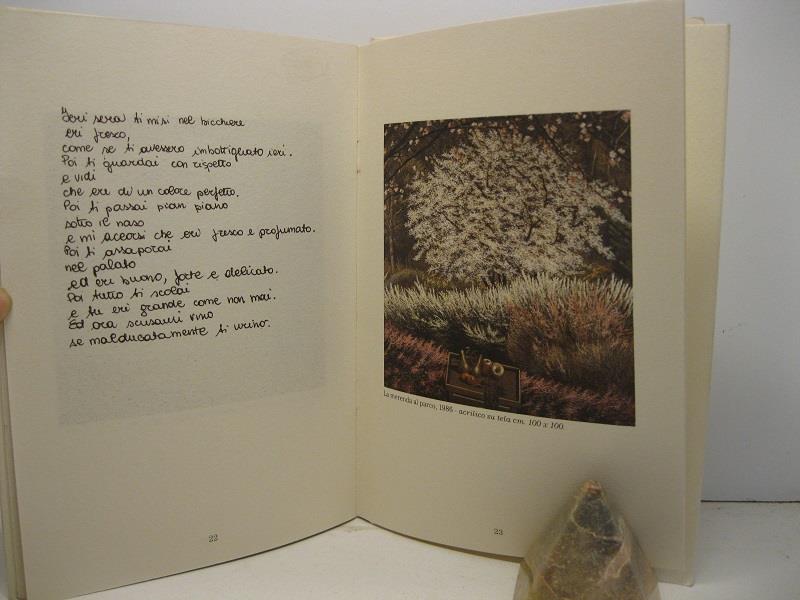 Ieri sera ti misi nel bicchiere
eri fresco,
come se ti avessero imbottigliato ieri.
Poi ti guardai con rispetto
e vidi
che eri di un colore perfetto.
Poi ti passai pian piano
sotto il naso
e mi accorsi che eri fresco e profumato.
Poi ti assaporai
nel palato
ed eri buono, forte e delicato.
Poi tutto ti scolai
e tu eri grande come non mai.
Ed ora scusami vino
se maleducatamente ti urino.
22
La merenda al parco, 1986 - acrilico su tela cm. 100 x 100.
23